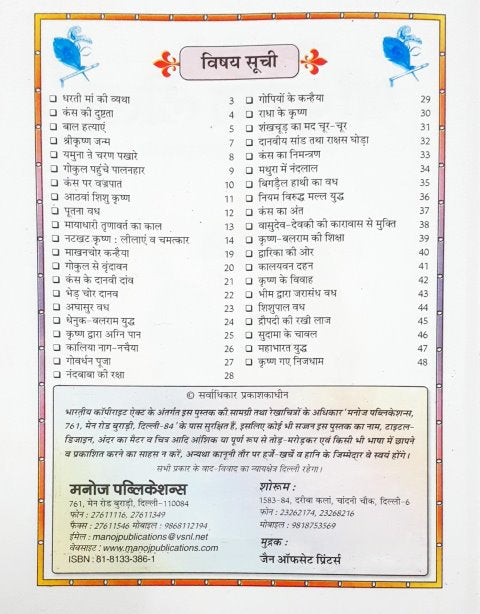 विषय सूची
❑ धरती मां की व्यथा 3
❑ कंस की दुष्टता 4
❑ बाल हत्याएं 5
❑ श्रीकृष्ण जन्म 7
❑ यमुना ने चरण पखारे 8
❑ गोकुल पहुंचे पालनहार 9
❑ कंस पर वज्रपात 10
❑ आठवां शिशु कृष्ण 11
❑ पूतना वध 12
❑ मायाधारी तृणावर्त का काल 13
❑ नटखट कृष्ण : लीलाएं व चमत्कार 14
❑ माखनचोर कन्हैया 19
❑ गोकुल से वृंदावन 20
❑ कंस के दानवी दांव 21
❑ भेड़ चोर दानव 22
❑ अघासुर वध 23
❑ धेनुक-बलराम युद्ध 24
❑ कृष्ण द्वारा अग्नि पान 25
❑ कालिया नाग-नथैया 26
❑ गोवर्धन पूजा 27
❑ नंदबाबा की रक्षा 28
❑ गोपियों के कन्हैया 29
❑ राधा के कृष्ण 30
❑ शंखचूड़ का मद चूर-चूर 31
❑ दानवीय सांड तथा राक्षस घोड़ा 32
❑ कंस का निमन्त्रण 33
❑ मथुरा में नंदलाल 34
❑ बिगड़ैल हाथी का वध 35
❑ नियम विरुद्ध मल्ल युद्ध 36
❑ कंस का अंत 37
❑ वासुदेव-देवकी की कारावास से मुक्ति 38
❑ कृष्ण-बलराम की शिक्षा 39
❑ द्वारिका की ओर 40
❑ कालयवन दहन 41
❑ कृष्ण के विवाह 42
❑ भीम द्वारा जरासंध वध 43
❑ शिशुपाल वध 44
❑ द्रौपदी की रखी लाज 45
❑ सुदामा के चावल 46
❑ महाभारत युद्ध 47
❑ कृष्ण गए निजधाम 48
© सर्वाधिकार प्रकाशकाधीन
भारतीय कॉपीराइट ऐक्ट के अंतर्गत इस पुस्तक की सामग्री तथा रेखाचित्रों के अधिकार 'मनोज पब्लिकेशन्स,
761, मेन रोड बुराड़ी, दिल्ली-84' के पास सुरक्षित हैं, इसलिए कोई भी सज्जन इस पुस्तक का नाम, टाइटल-
डिजाइन, अंदर का मैटर व चित्र आदि आंशिक या पूर्ण रूप से तोड़-मरोड़कर एवं किसी भी भाषा में छापने
व प्रकाशित करने का साहस न करें, अन्यथा कानूनी तौर पर हर्जे-खर्चे व हानि के जिम्मेदार वे स्वयं होंगे।
सभी प्रकार के वाद-विवाद का न्यायक्षेत्र दिल्ली रहेगा।
मनोज पब्लिकेशन्स
761, मेन रोड बुराड़ी, दिल्ली-110084
फोन : 27611116, 27611349
फैक्स : 27611546 मोबाइल : 9868112194
ईमेल : manojpublications@vsnl.net
वेबसाइट : www.manojpublications.com
ISBN : 81-8133-386-1
शोरूम :
1583-84, दरीबा कलां, चांदनी चौक, दिल्ली-6
फोन : 23262174, 23268216
मोबाइल : 9818753569
मुद्रक :
जैन ऑफसेट प्रिंटर्स